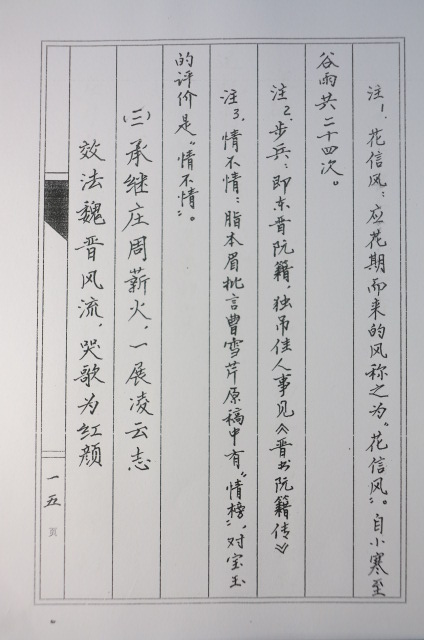 注1.花信风:应花期而来的风称之为“花信风”。自小寒至
谷雨共二十四次。
注2.步兵:即东晋阮籍,独吊佳人事见《晋书阮籍传》
注3.情不情:脂本眉批言曹雪芹原稿中有“情榜”,对宝玉
的评价是“情不情”。
(三)承继庄周薪火,一展凌云志
效法魏晋风流,哭歌为红颜
一五页